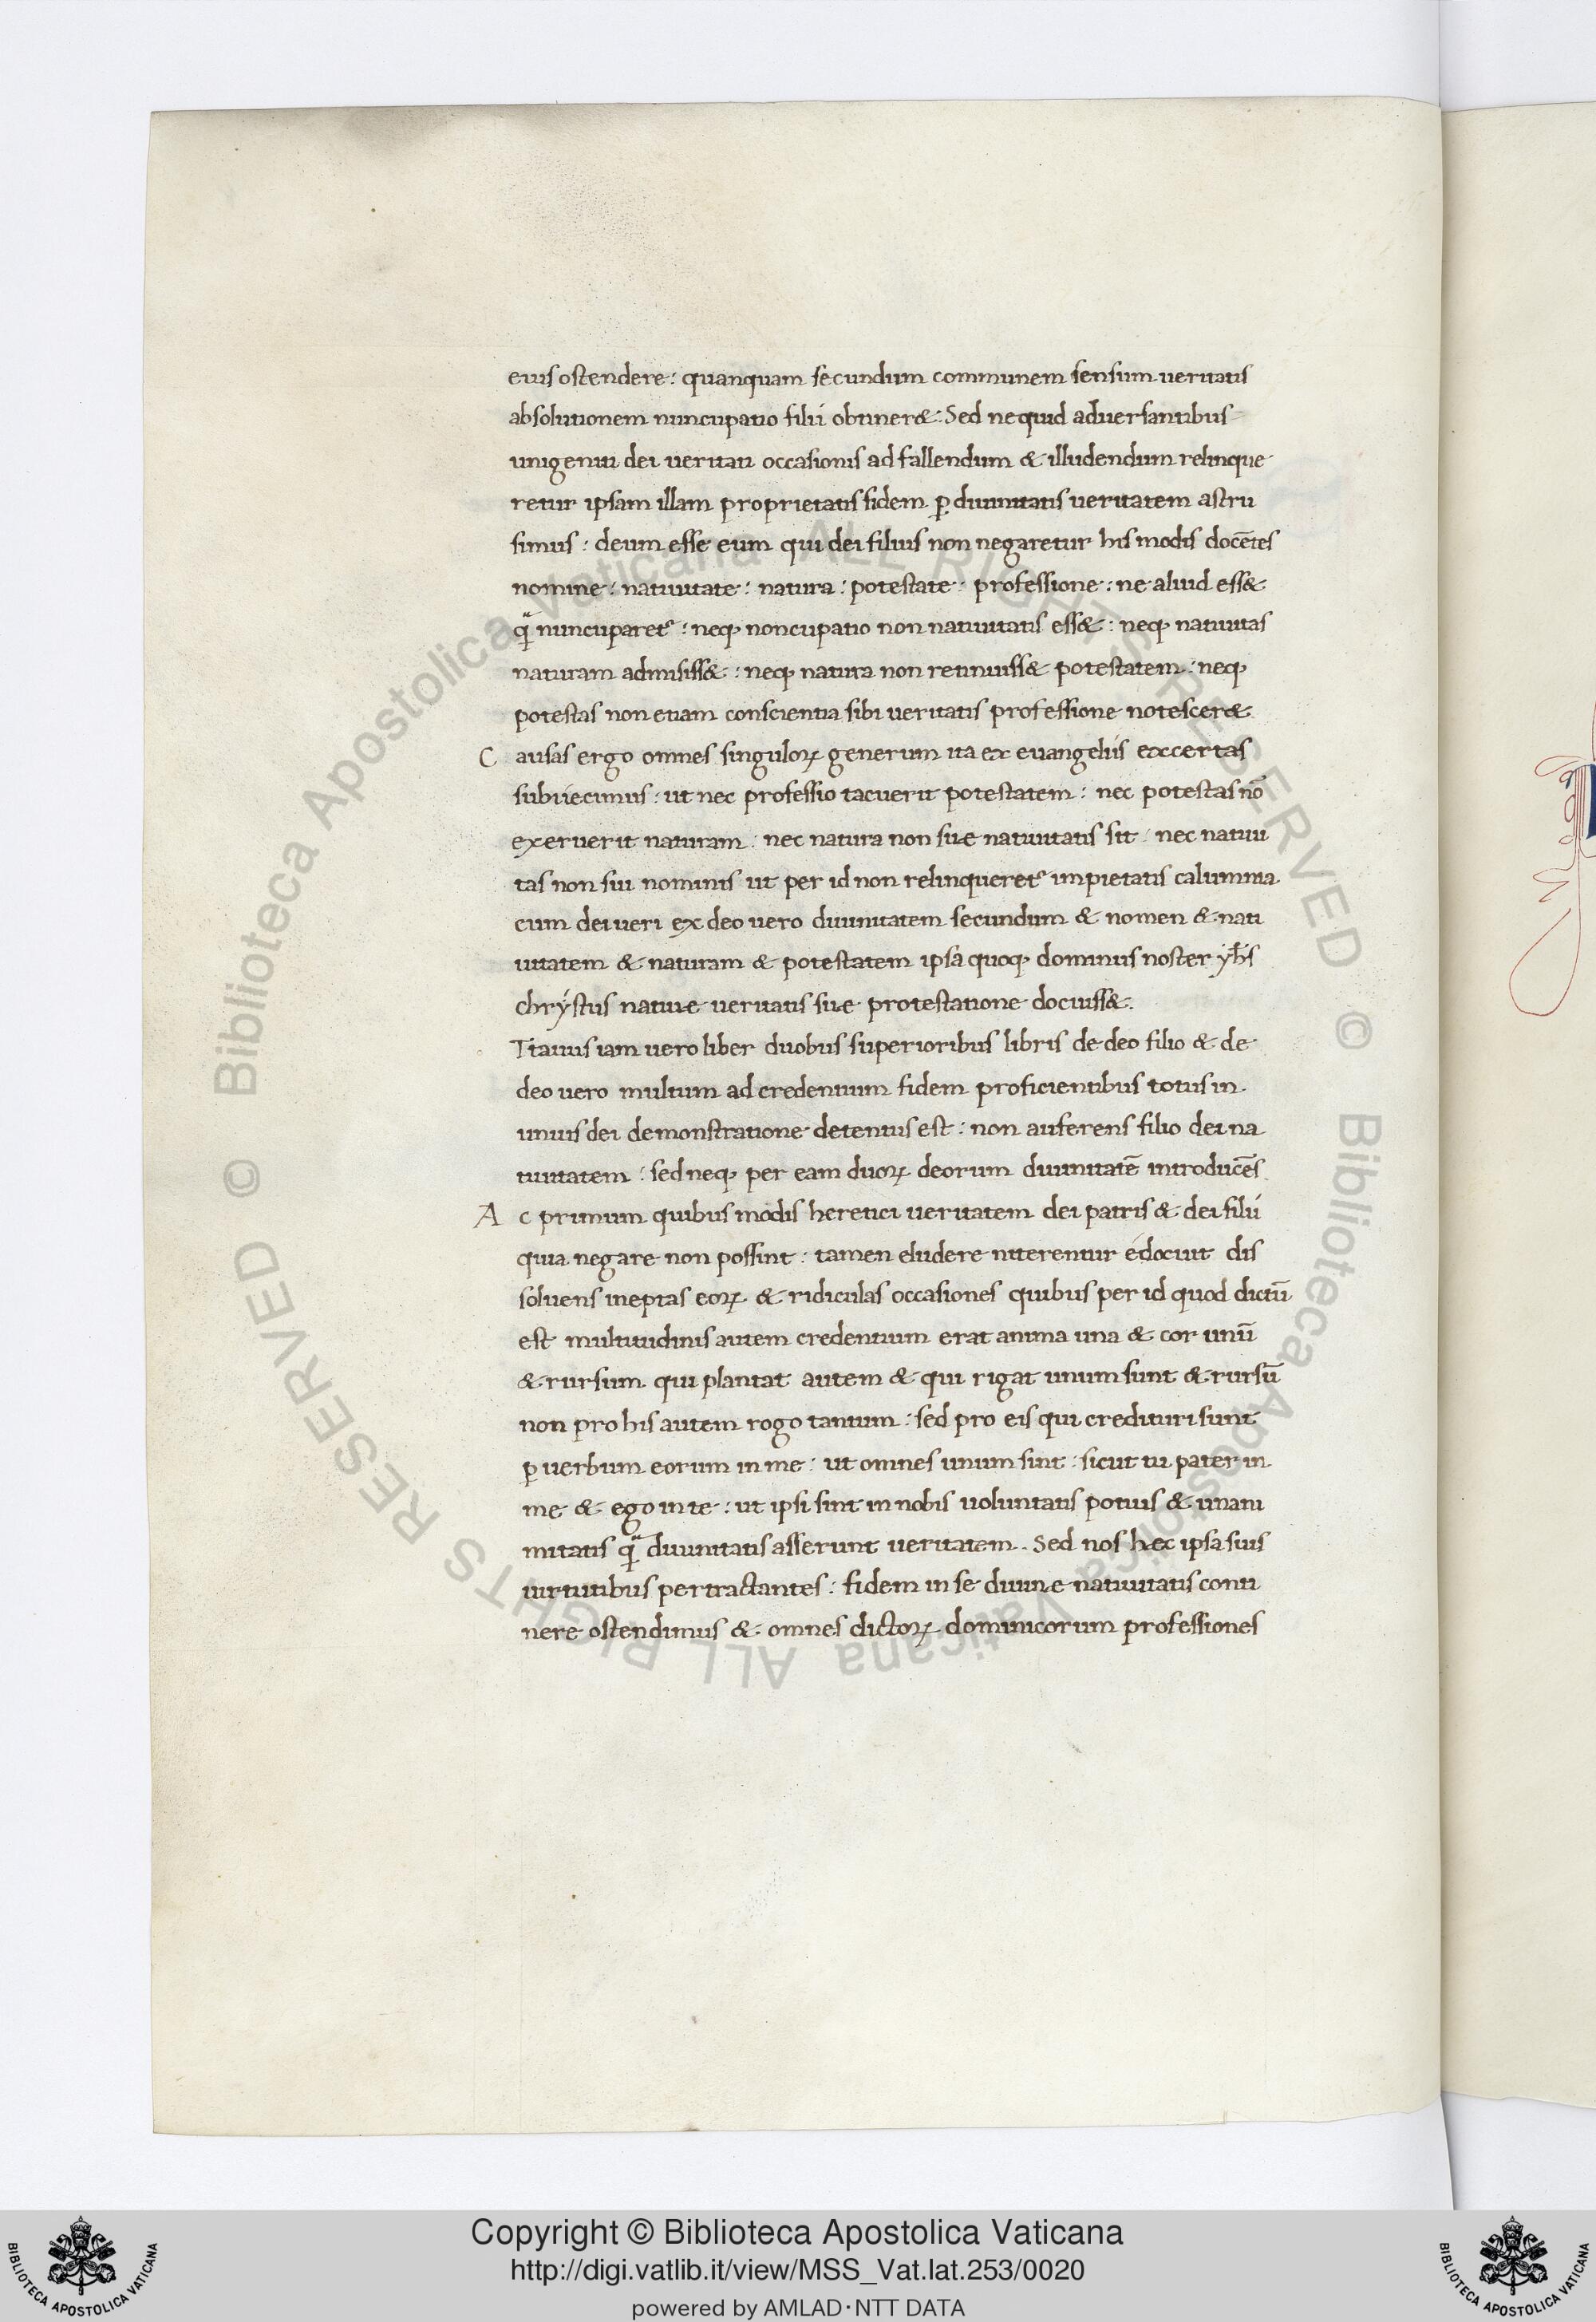 eius ostendere: quanquam secundum communem sensum ueritatis
absolutionem nuncupatio filii obtiner&: Sed nequid aduersantibus
unigeniti dei ueritati occasionis ad fallendum & illudendum relinque
retur ipsam illam proprietatis fidem ꝑ diuinitatis ueritatem astru
simus: deum esse eum qui dei filius non negaretur his modis docẽtes
nomine: natiuitate: natura: potestate: professione: ne aliud ess&
qͣ̃ nuncuparet᷑: neqꝫ noncupatio non natiuitatis ess&: neqꝫ natiuitas
naturam admisiss&: neqꝫ natura non retinuiss& potestatem: neqꝫ
potestas non etiam conscientia sibi ueritatis professione notescer&
C ausas ergo omnes singuloꝝ generum ita ex euangeliis excertas
subiiecimus: ut nec professio tacuerit potestatem: nec potestas nõ
exeruerit naturam: nec natura non suę natiuitatis sit: nec natiui
tas non sui nominis ut per id non relinqueret᷑ impietatis calumnia
cum dei ueri ex deo uero diuinitatem secundum & nomen & nati
uitatem & naturam & potestatem ipsa quoqꝫ dominus noster yħs
chrystus natiuę ueritatis suę protestatione docuiss&.
Ttauus iam uero liber duobus superioribus libris de deo filio & de
deo uero multum ad credentium fidem proficientibus totus in
unius dei demonstratione detentus est: non auferens filio dei na
tiuitatem: sed neqꝫ per eam duoꝝ deorum diuinitatẽ introducẽs
A c primum quibus modis heretici ueritatem dei patris & dei filii
quia negare non possint: tamen eludere niterentur edocuit dis
soluens ineptas eoꝝ & ridiculas occasiones quibus per id quod dictũ
est multitudinis autem credentium erat anima una & cor unũ
& rursum qui plantat autem & qui rigat unum sunt & rursũ
non pro his autem rogo tantum: sed pro eis qui credituri sunt
ꝑ uerbum eorum in me: ut omnes unum sint: sicut tu pater in
me & ego in te: ut ipsi sint in nobis uoluntatis potius & unani
mitatis qͣ̃ diuinitatis asserunt ueritatem. Sed nos hęc ipsa suis
uirtutibus pertractantes: fidem in se diuinę natiuitatis conti
nere ostendimus & omnes dictoꝝ dominicorum professiones
© Biblioteca Apostolica Vaticana ALL RIGHTS RESERVED
© Biblioteca Apostolica Vaticana ALL RIGHTS RESERVED
BIBLIOTECA APOSTOLICA VATICANA
Copyright © Biblioteca Apostolica Vaticana
http://digi.vatlib.it/view/MSS_Vat.lat.253/0020
powered by AMLAD·NTT DATA
BIBLIOTECA APOSTOLICA VATICANA